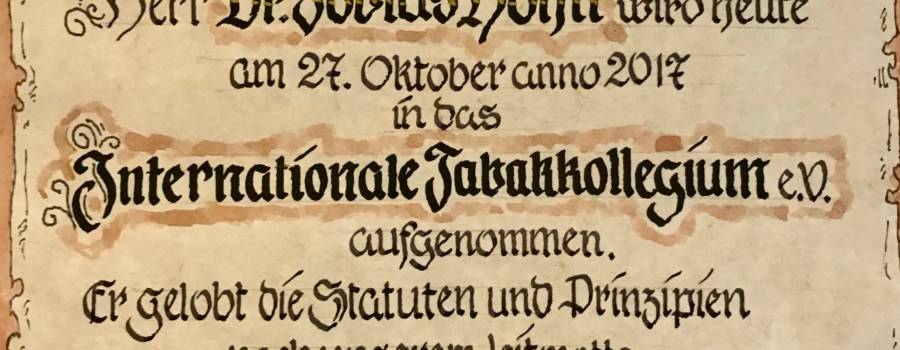 Herr Dr. Tobias Höhn wird heute
am 27. Oktober anno 2017
in das
Internationale Tabakkollegium e.V.
aufgenommen.
Er gelobt die Statuten und Prinzipien